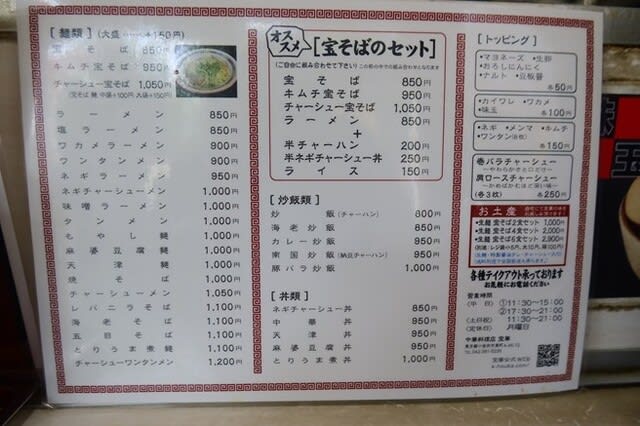 [麺類] (大盛 +150円)
宝そば 850円
キムチ宝そば 950円
チャーシュー宝そば 1,050円
(宝そば 麺 中盛+100円 大盛+150円)
ラーメン 850円
塩ラーメン 850円
ワカメラーメン 900円
ワンタンメン 900円
ネギラーメン 950円
ネギチャーシューメン 1,000円
味噌ラーメン 1,000円
タンメン 1,000円
もやし麺 1,000円
麻婆豆腐麺 1,000円
天津麺 1,000円
焼そば 1,000円
チャーシューメン 1,050円
レバニラそば 1,100円
海老そば 1,100円
五目そば 1,100円
とりうま煮麺 1,100円
チャーシューワンタンメン 1,200円
オススメ [宝そばのセット]
(ご自由に組み合わせて下さい) この枠の中での組み合わせとなります
宝そば 850円
キムチ宝そば 950円
チャーシュー宝そば 1,050円
ラーメン 850円
+
半チャーハン 200円
半ネギチャーシュー丼 250円
ライス 150円
[炒飯類]
炒飯(チャーハン) 800円
海老炒飯 950円
カレー炒飯 950円
南国炒飯(納豆チャーハン) 950円
豚バラ炒飯 1,000円
[丼類]
ネギチャーシュー丼 850円
中華丼 950円
天津丼 950円
麻婆豆腐丼 950円
とりうま煮丼 1,000円
[トッピング]
・マヨネーズ ・生卵
・おろしにんにく
・ナルト ・豆板醤
各50円
・カイワレ ・ワカメ
・味玉 各100円
・ネギ ・メンマ ・キムチ
・ワンタン(各枚)
各150円
巻バラチャーシュー
〜やわらかさと口どけ〜
肩ロースチャーシュー
〜かめばかむほど深い味〜
(各3枚) 各250円
お土産
・生麺 宝そば2食セット 1,000円
・生麺 宝そば4食セット 2,000円
・生麺 宝そば6食セット 2,900円
各種テイクアウト承っております
お気軽にお電話ください
営業時間
(平日) ①11:30〜15:00
②17:30〜21:00
(土日祝) 11:30〜21:00
(定休日) 月曜日
中華料理店 宝華
宝華公式WEB